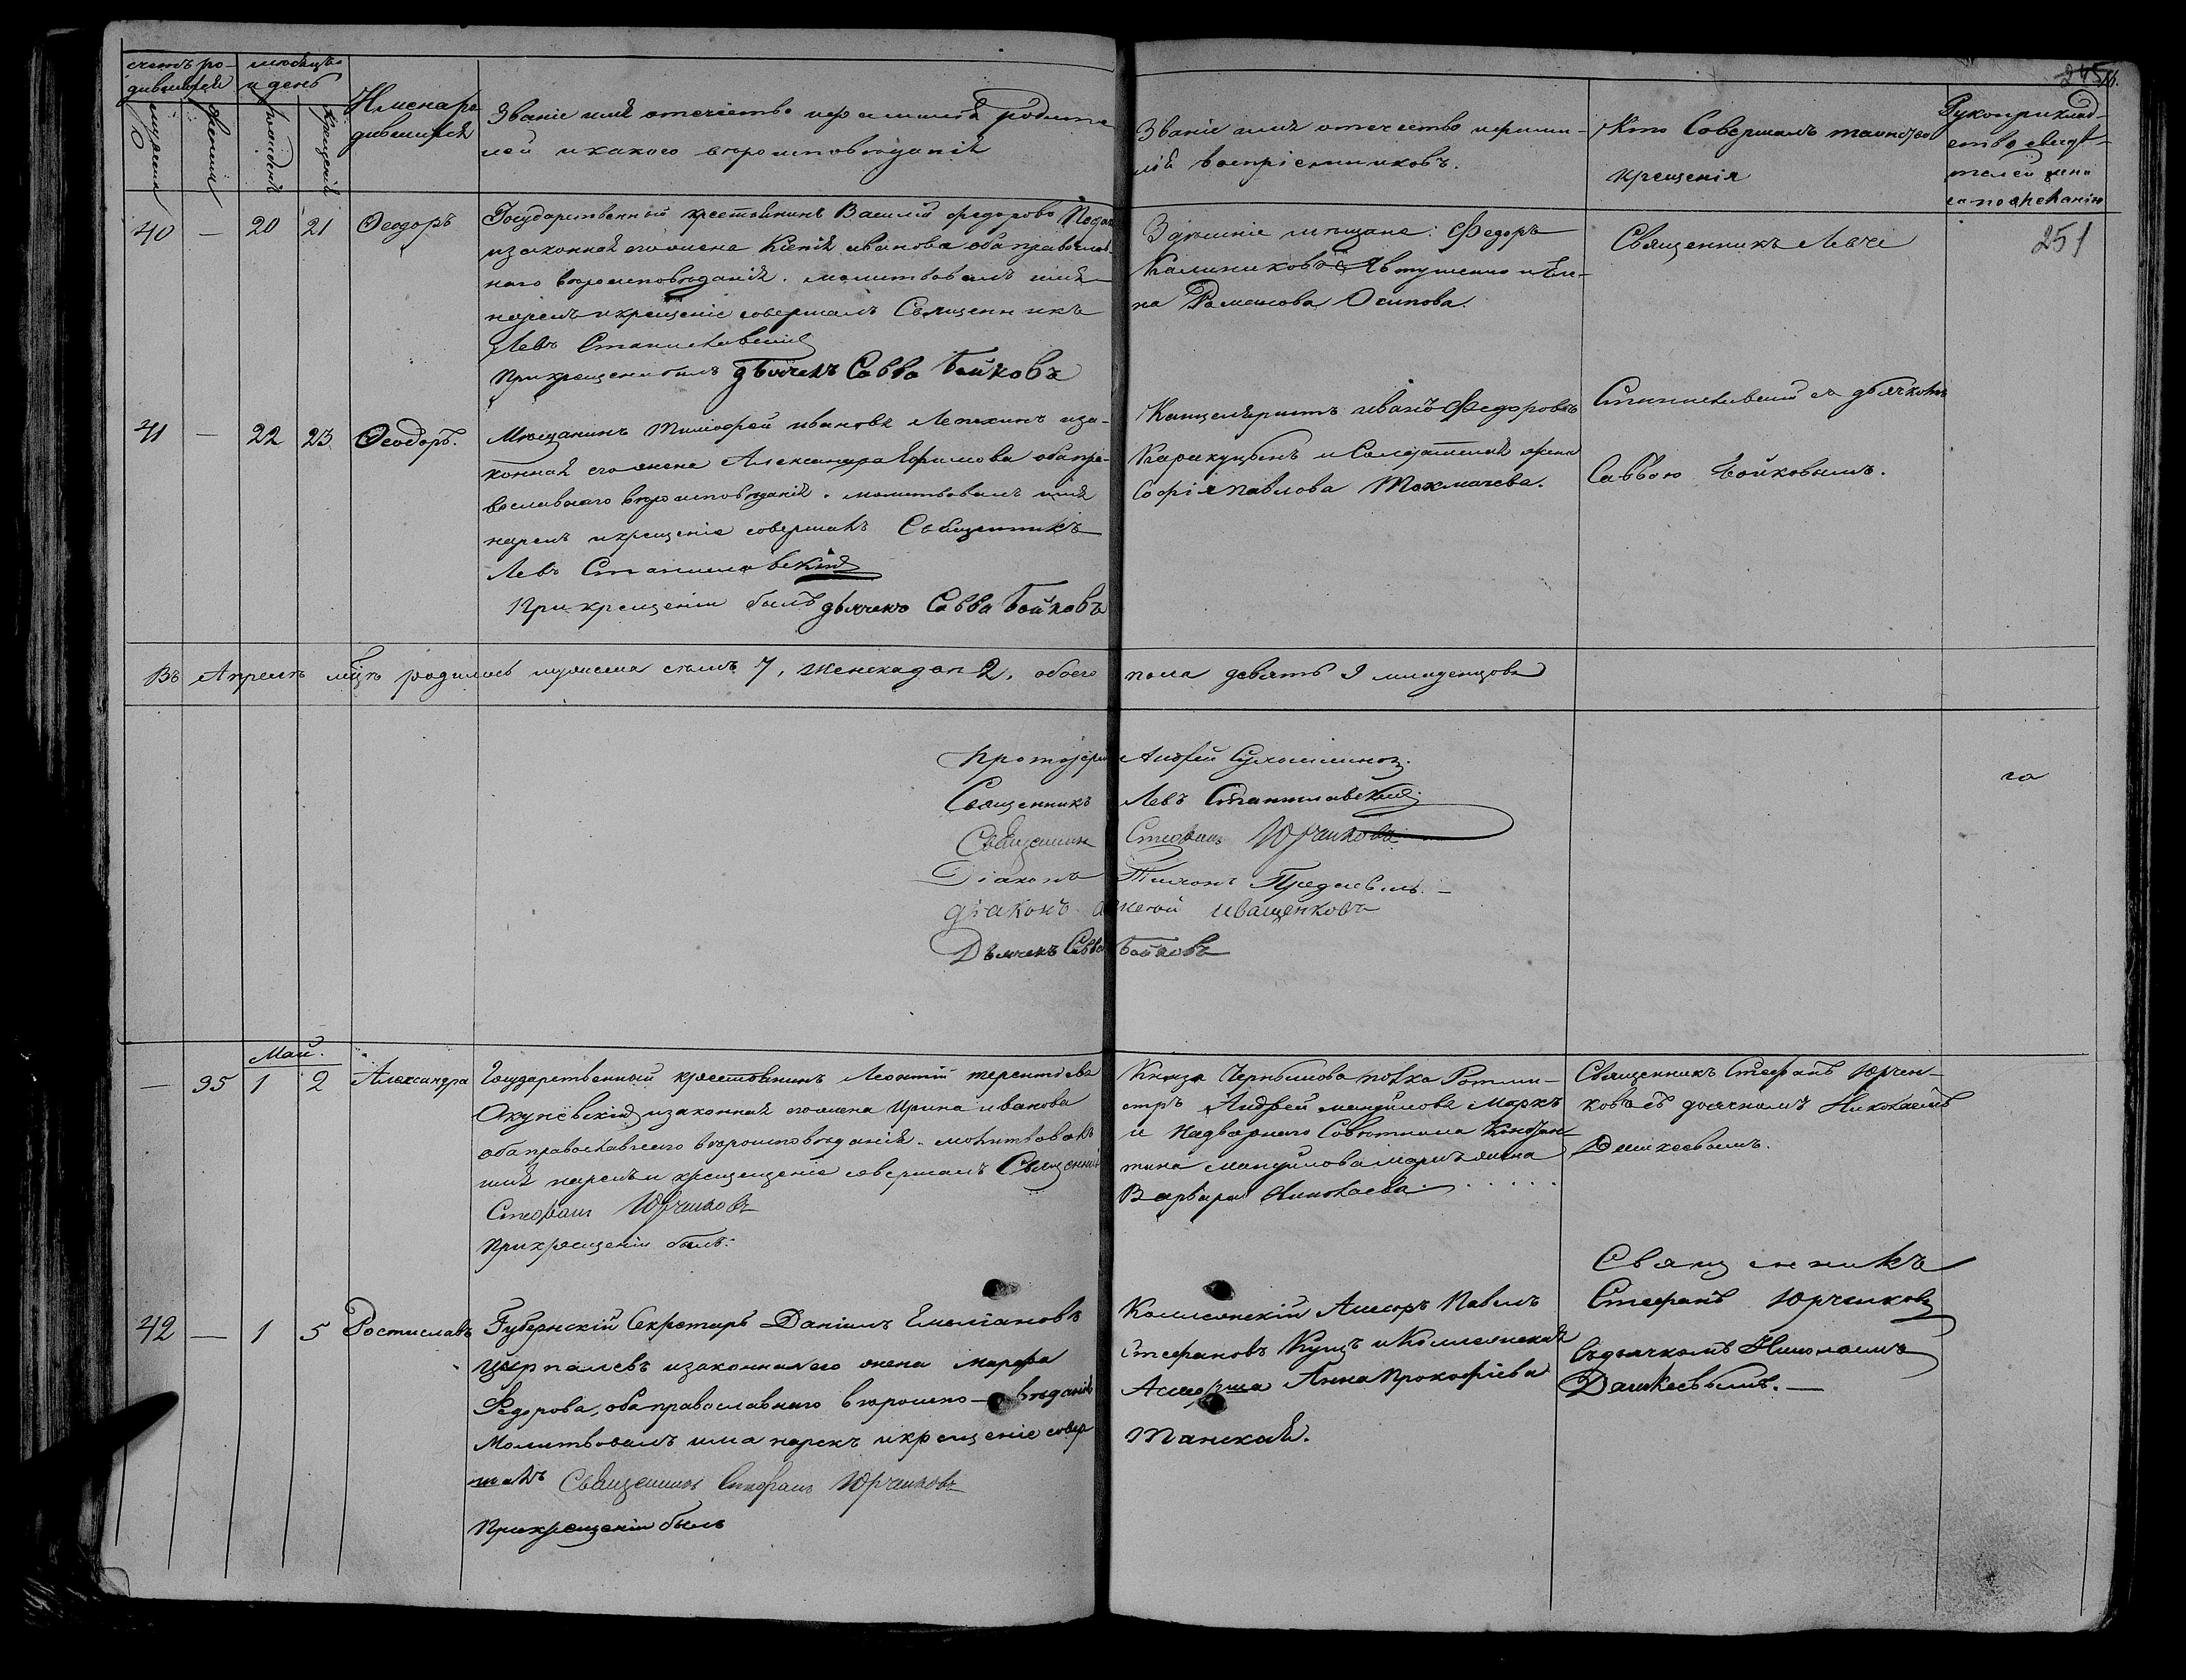 счетъ ро-
дившихся
мѣсяцъ
и день
мужеска
женска
рожденія
крещенія
Имена ро
дившихся
Званіе имя отечество и фамилія родите
лей и какого вѣроисповѣданія
Званіе имя отечество и фами-
лія воспріемниковъ.
Кто Совершалъ таинство
крещенія
Рукоприклад-
ство свидѣ-
телей
по желанію
40 — 20 21 Ѳеодоръ
Государственный крестьянинъ Василій федоровъ
и законная его жена Ксенія иванова оба православ
наго вѣроисповѣданія. молитвовалъ имя
нарекъ и крещеніе совершалъ Священникъ
Левъ Станиславскій
При крещеніи былъ дьячекъ Савва Бойковъ
Здѣшніе мѣщане: Федоръ
Калиниковъ Явтушенко и Еле-
на Романова Осипова.
Священникъ Левъ
251
41 — 22 23 Ѳеодоръ.
Мѣщанинъ Тимофей ивановъ Лепехинъ и за-
конная его жена Александра Ефимова оба пра-
вославнаго вѣроисповѣданія. молитвовалъ имя
нарекъ и крещеніе совершалъ Священникъ
Левъ Станиславскій
При крещеніи былъ дьячекъ Савва Бойковъ
Канцеляристъ иванъ Федоровъ
Каракуцынъ и Солдатская жена
Софія павлова Токмачева.
Станиславскій съ дьячкомъ
Саввою Бойковымъ.
Въ Апрелѣ мцѣ родилось мужеска полъ 7, женскаго 2, обоего пола девять 9 младенцовъ
Протоіерей Андрей
Священникъ Левъ Станиславскій
Священникъ Стефанъ Юрченковъ
Діаконъ Тихонъ
діаконъ Алексей иващенковъ
Дьячекъ Савва Бойковъ
Май.
— 35 1 2 Александра
Государственный крестьянинъ Леонтій терентіевъ
Окунёвскій и законная его жена Ирина иванова
оба православнаго вѣроисповѣданія. молитвовалъ
имя нарекъ и крещеніе совершалъ Священникъ
Стефанъ Юрченковъ
При крещеніи былъ:
Князя Чернышова полка Ротми-
стръ Андрей мануиловъ Маркъ
и надворнаго Совѣтника Констан-
тина мануилова маркъ жена
Варвара Николаева . . . . .
Священникъ Стефанъ Юрчен-
ковъ съ дьячкомъ Николаемъ
Дашкеевымъ.
42 — 1 5 Ростиславъ
Губернскій Секретарь Даніилъ Емеліановъ
и законная его жена марфа
Федорова, оба православнаго вѣроиспо-вѣданія
Молитвовалъ имя нарекъ и крещеніе совер
шалъ Священникъ Стефанъ Юрченковъ
При крещеніи былъ
Коллежскій Ассесоръ Павелъ
Стефановъ Куцъ и Коллежская
Ассесорша Анна Прокофіева
Танская.
Священникъ
Стефанъ Юрченковъ
Съ дьячкомъ Николаемъ
Дашкеевымъ. —